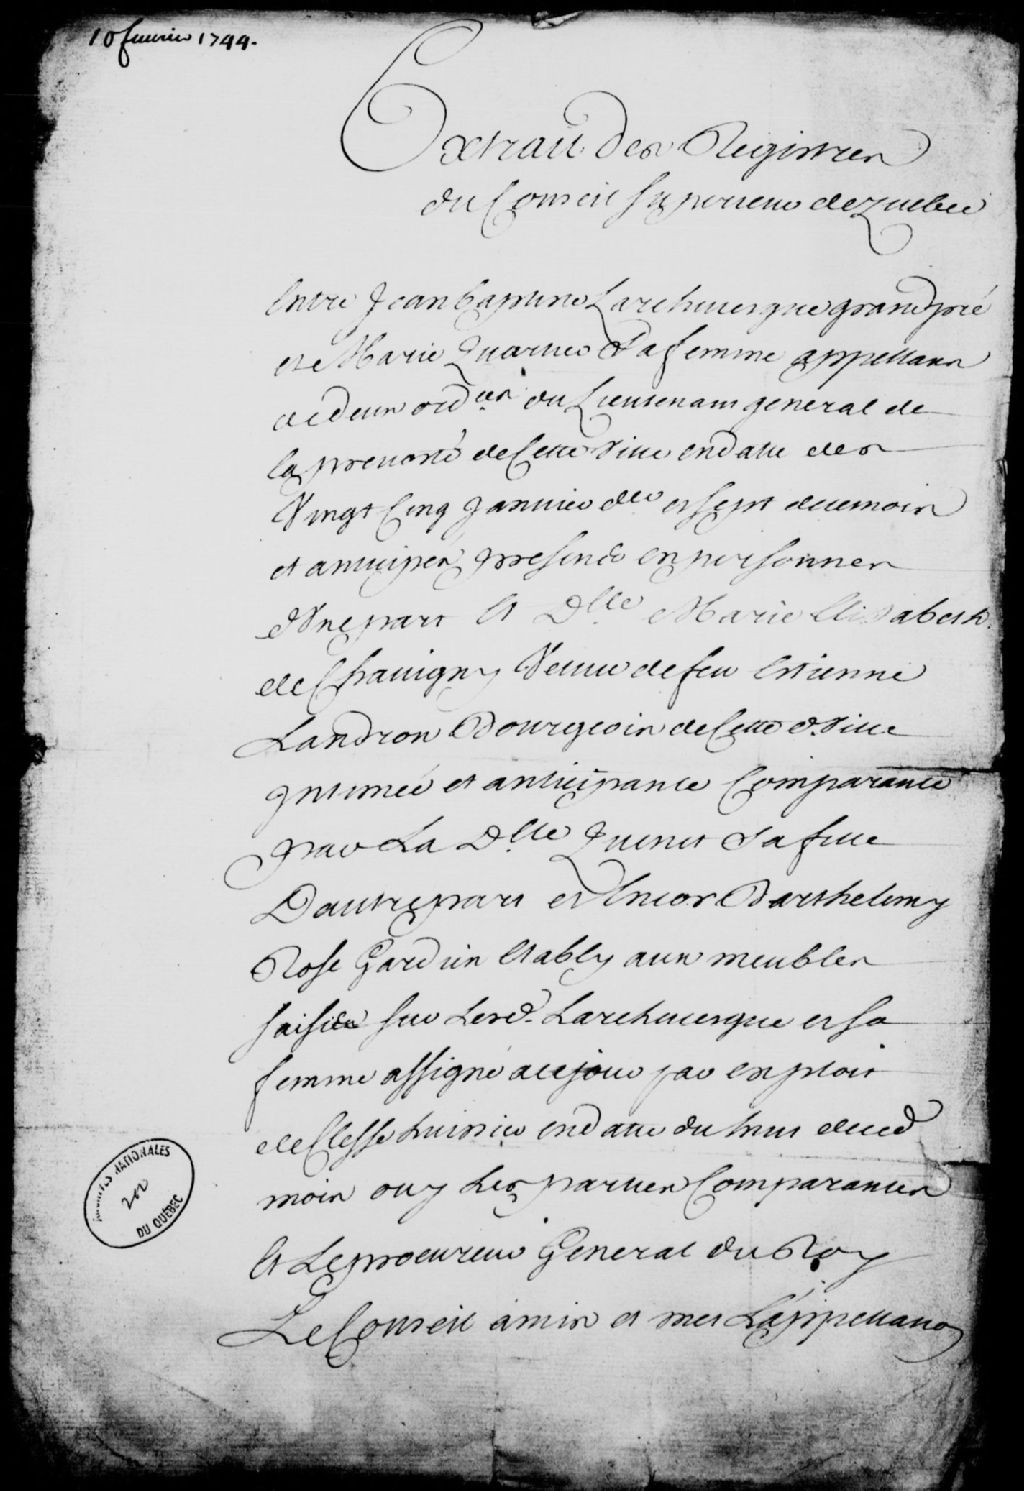 10 fevrier 1744.
Extrait des Registres
du Conseil Superieur de Quebec
Entre Jean Baptiste Larchevesque grandpré
et Marie sa femme appellans
de deux ord.ces du Lieutenant general de
la prevosté de Cette Ville en datte des
Vingt Cinq Janvier d.er et sept de ce mois
et anticipez presents en personnes
d'Une part Et D.lle Marie Elisabeth
de Chavigny Veuve de feu Estienne
Landron Bourgeois de Cette d. Ville
Intimée et anticipante Comparante
par La D.lle sa fille
D'autre part et Encor Barthelemy
Rose Gardien Etably aux meubles
saisies sur Led. Larchevesque et sa
femme assigné a ce jour par Exploit
de Clesse huissier en datte du huit de ced
mois ouy Les parties Comparantes
Et Le procureur General du Roy
Le Conseil a mis et met L'appellation
ARCHIVES NATIONALES
DU QUÉBEC